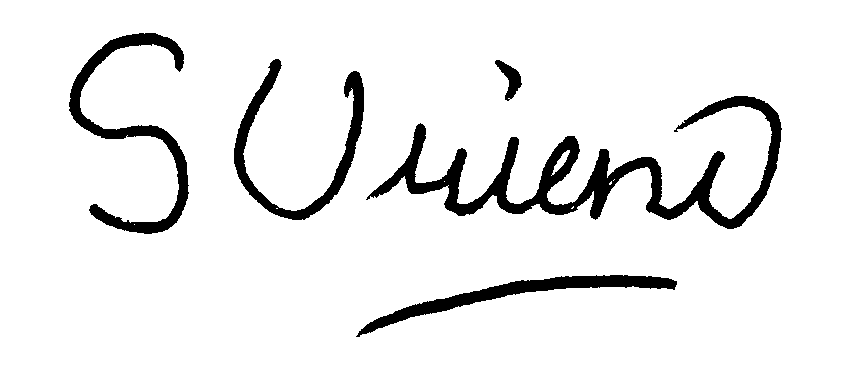 S Vriend